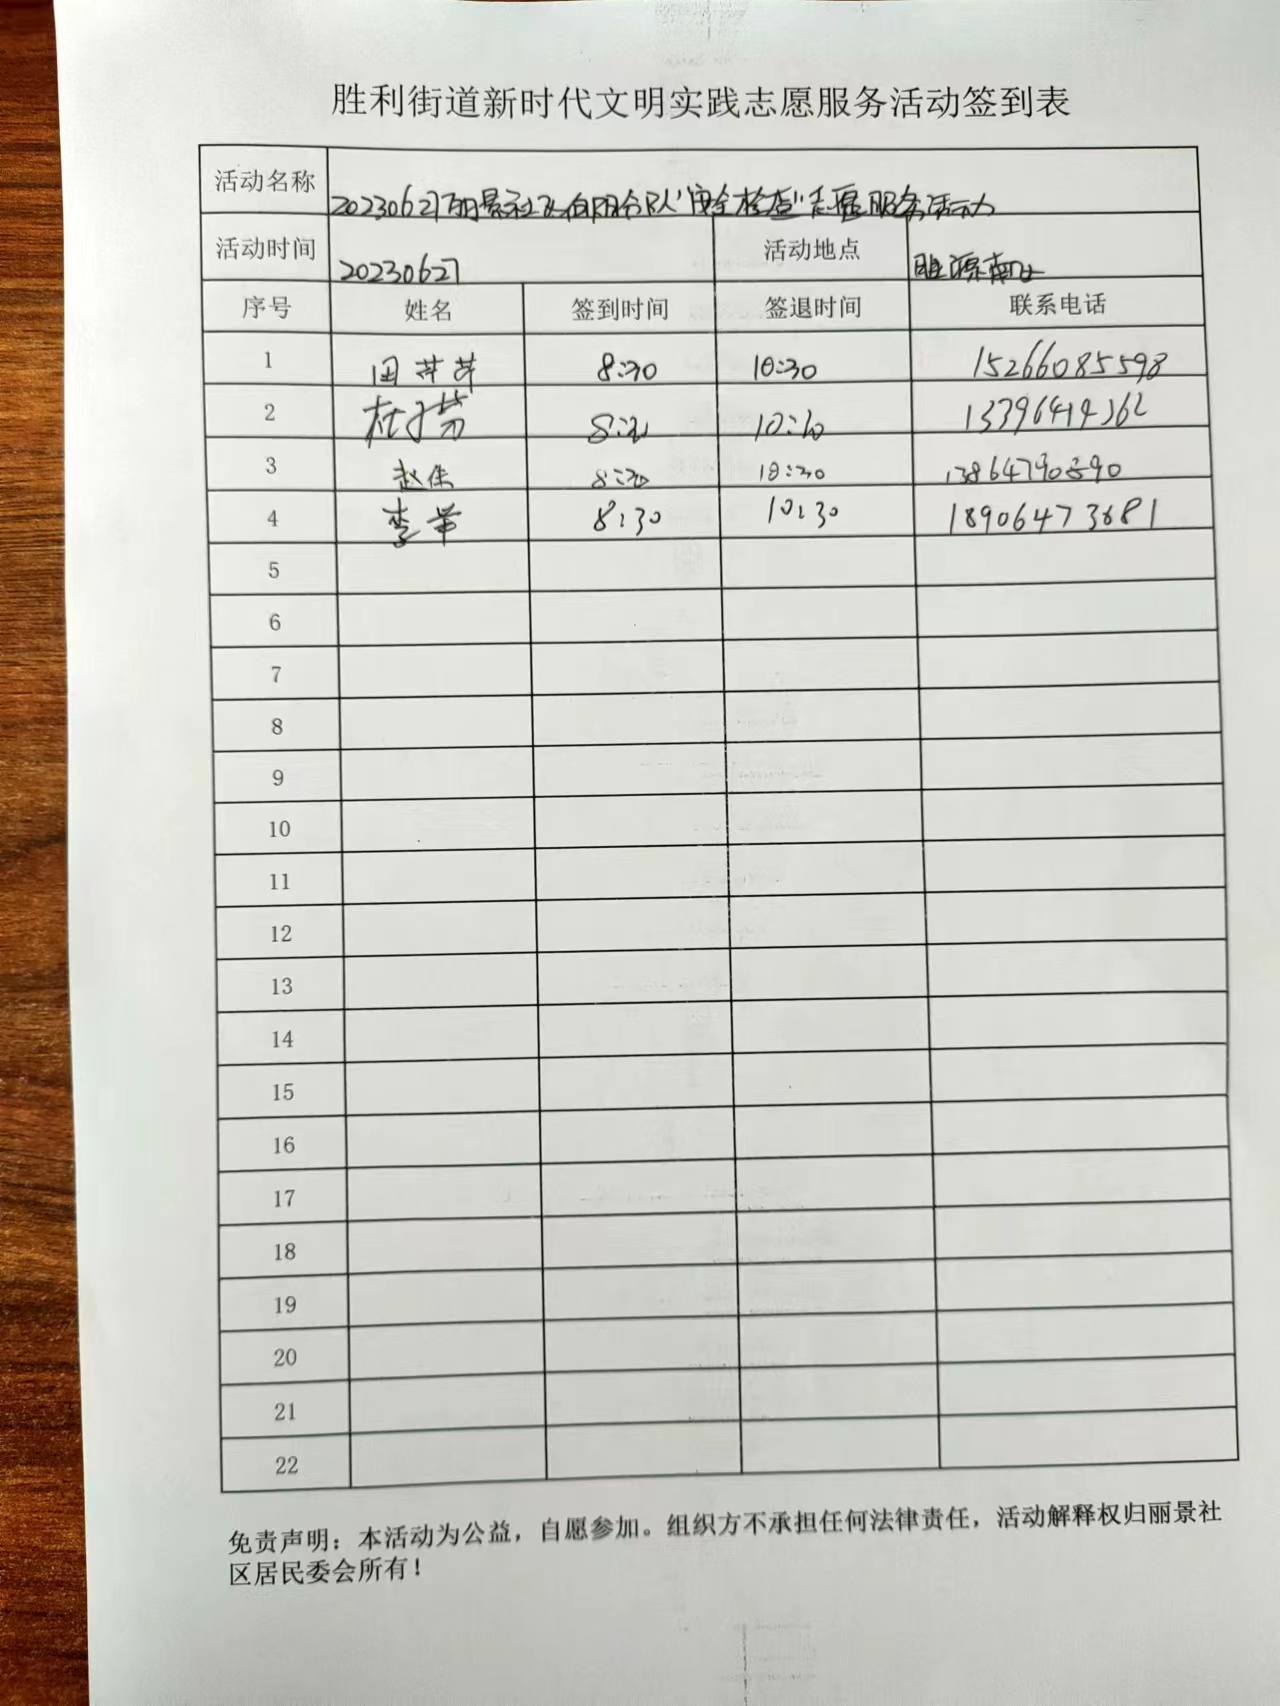 胜利街道新时代文明实践志愿服务活动签到表
活动名称 20230627丽景社区向阳合队"安全检查"志愿服务活动
活动时间 20230627 活动地点 胜源南区
序号 姓名 签到时间 签退时间 联系电话
1 田芊芊 8:30 10:30 15266085598
2 8:30 10:30
3 赵伟 8:30 10:30
4 李荣 8:30 10:30 18906473681
5
6
7
8
9
10
11
12
13
14
15
16
17
18
19
20
21
22
免责声明：本活动为公益，自愿参加。组织方不承担任何法律责任，活动解释权归丽景社
区居民委会所有！